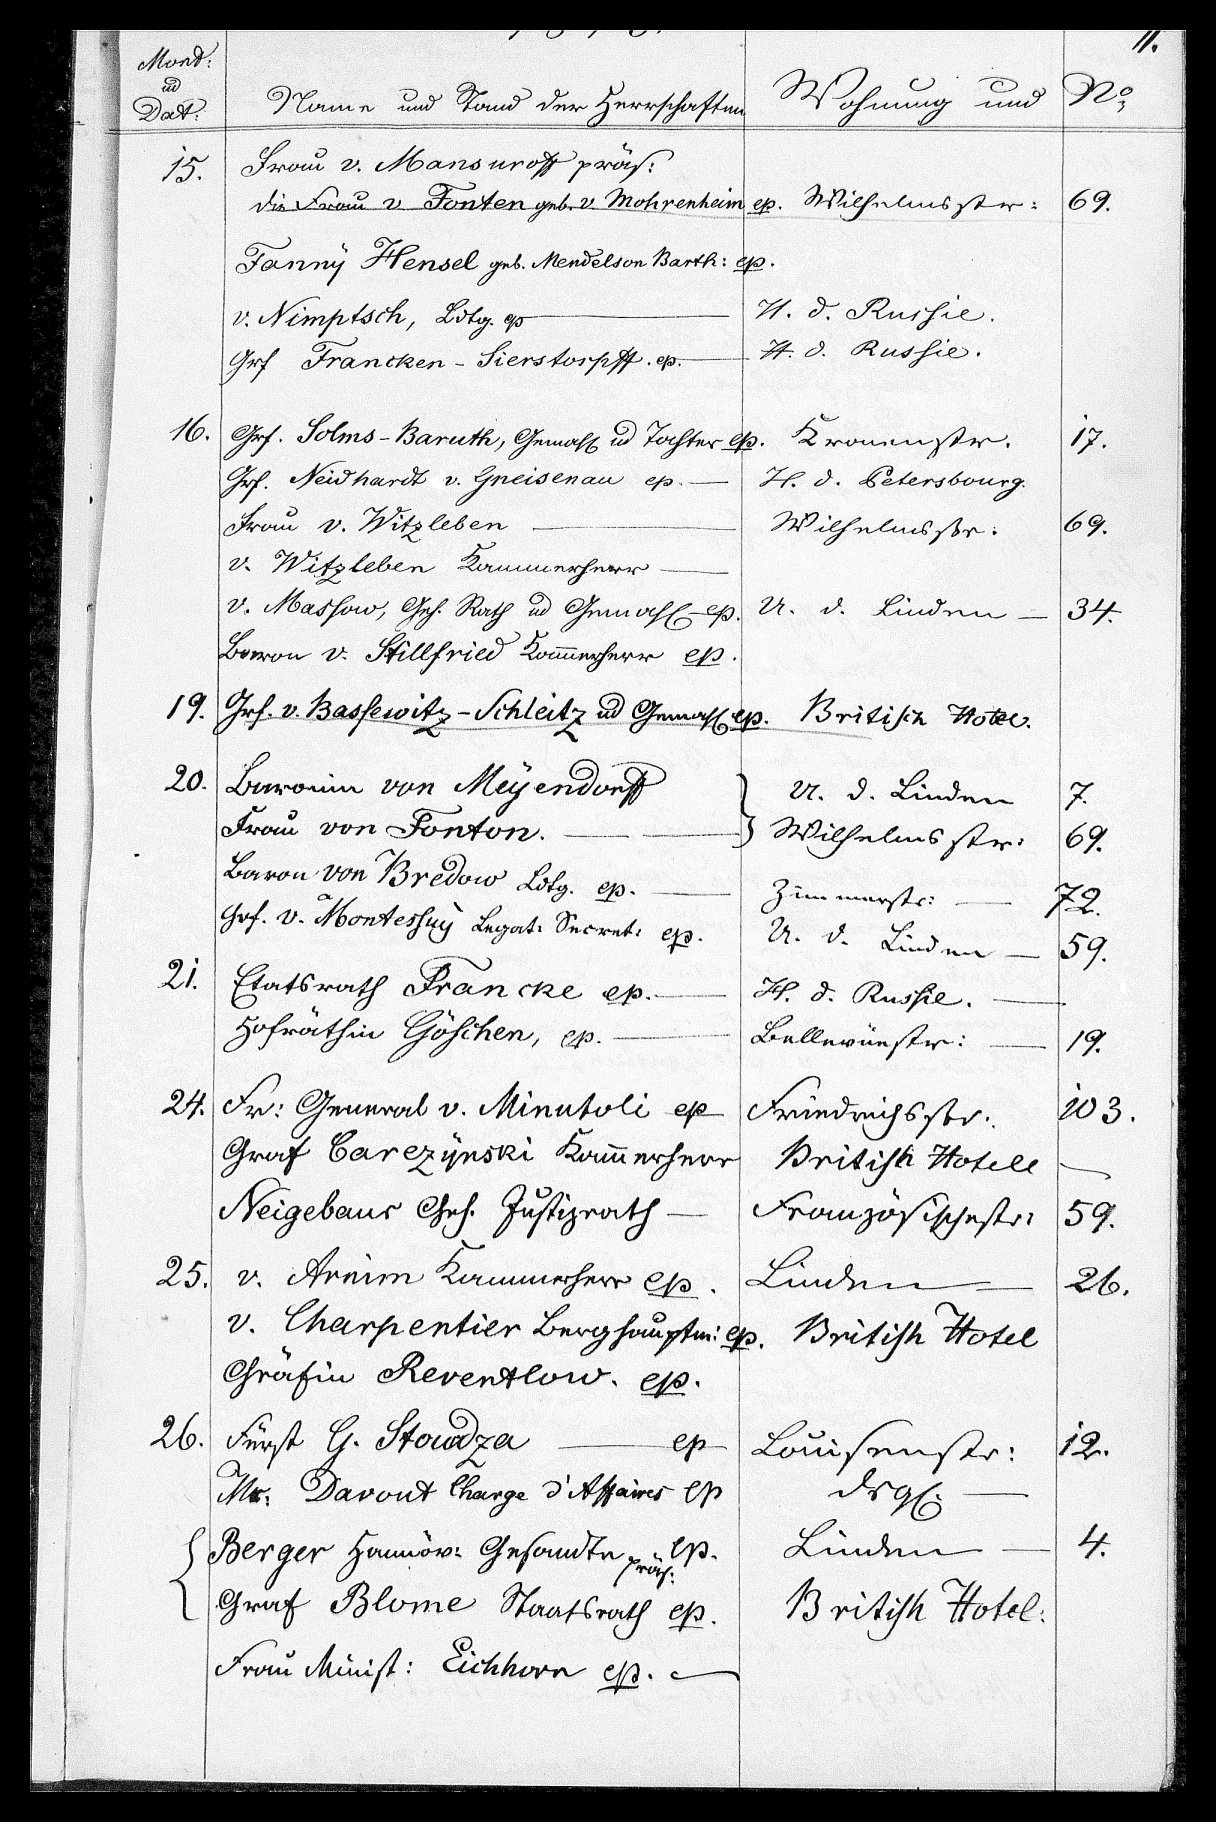 11.
Mond:
ud
Dat:
Name und Stand der Herrschaften Wohnung und No
15. Frau v. Mansuroff präs:
die Frau v Fonten geb. v. Mohrenheim ep. Wilhelmsstr: 69.
Fanny Hensel geb. Mendelson Barth: ep.
v. Nimptsch, Ldtg. ep — H. d. Russie.
Grf Francken-Sierstorpff. ep. — H. d. Russie.
16. Grf. Solms-Baruth, Gemahl ud Tochter ep. Kronenstr. 17.
Grf. Neidhardt v. Gneisenau ep. — H. d. Petersbourg.
Frau v. Witzleben — Wilhelmsstr: 69.
v. Witzleben Kammerherr —
v. Massow, Geh. Rath ud Gemahl ep. U. d. Linden — 34.
Baron v. Stillfried Kam̄erherr ep.
19. Grf. v. Bassewitz-Schleitz ud Gemahl ep. British Hotel.
20. Baronin von Meÿendorff } U. d. Linden 7.
Frau von Fonton. — Wilhelmsstr: 69.
Baron von Bredow Ldtg. ep. — Zimmerstr: — 72.
Grf. v. Montessuÿ Legat: Secret: ep. U. d. Linden — 59.
21. Etatsrath Francke ep. — H. d. Russie. —
Hofräthin Göschen, ep. — Bellevüestr: — 19.
24. Fr: General v. Minutoli ep — Friedrichsstr: 103.
Graf Carczÿnski Kam̄erherr British Hotell —
Neigebaur Geh. Justizrath — Französischestr: 59.
25. v. Arnim Kammerherr ep. Linden — 26.
v. Charpentier Berghauptm: ep. British Hotel
Gräfin Reventlow. ep.
26. Fürst G. Stourdza — ep — Louisenstr: 12.
Mr: Davout Charge d'Affaires ep dsgl. —
{ Berger Hannöv: Gesandte ep. Linden — 4.
präs:
Graf Blome Staatsrath ep. British Hotel:
Frau Minist: Eichhorn ep. —